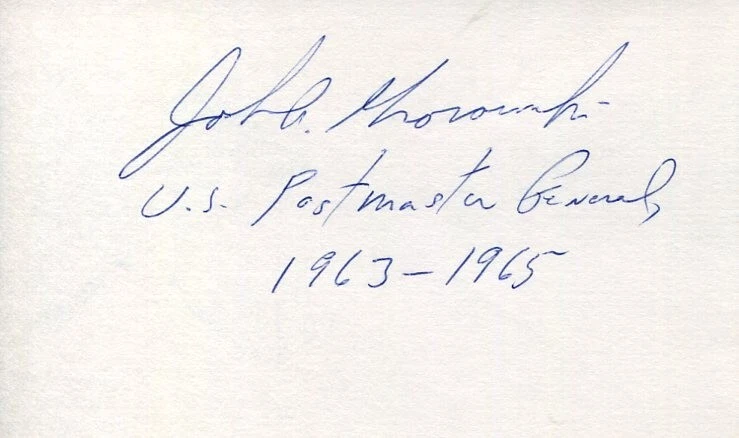 John A. Gronouski
U.S. Postmaster General,
1963-1965